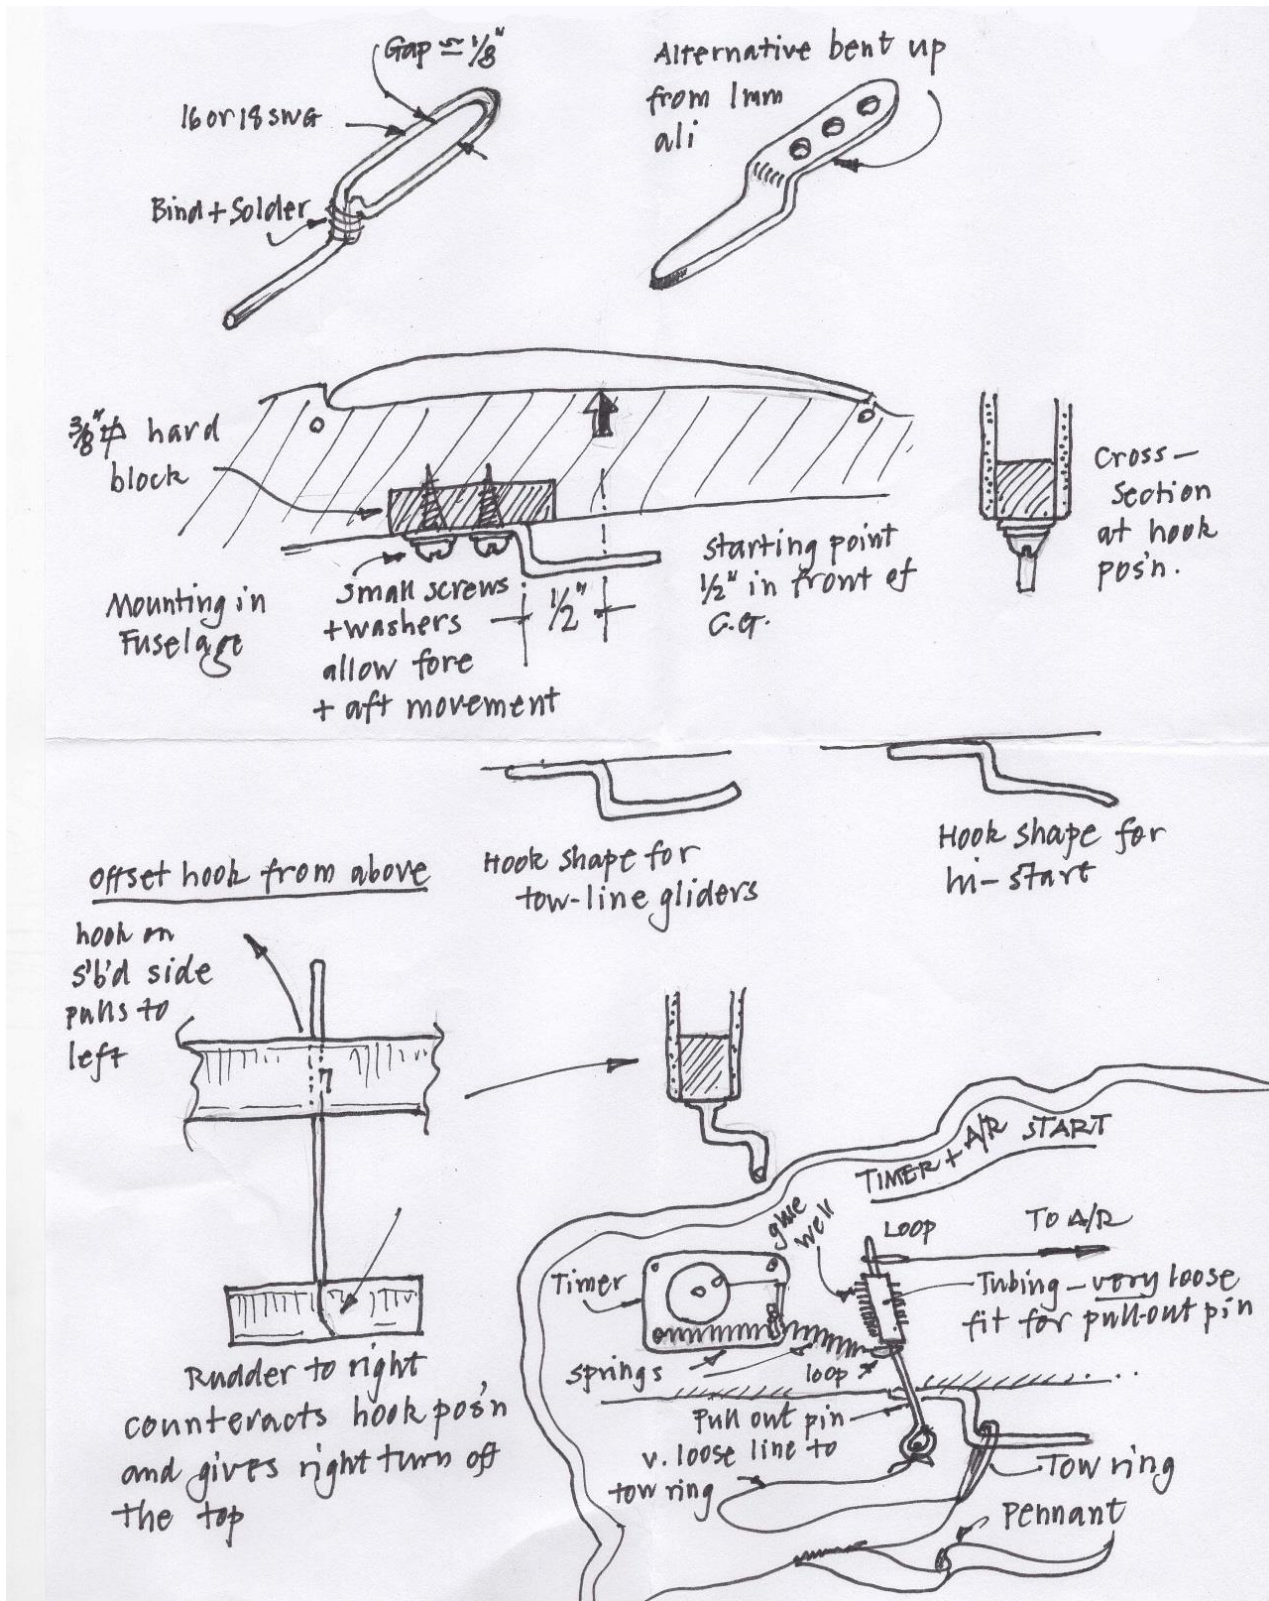 Gap ≃ 1/8"
16 or 18 SWG
Bind + Solder
Alternative bent up
from 1mm
ali
3/8" hard
block
Cross-
Section
at hook
pos'n.
Mounting in
Fuselage
small screws
+ washers
allow fore
+ aft movement
1/2"
starting point
1/2" in front of
C.G.
Hook shape for
tow-line gliders
Hook shape for
hi-start
Offset hook from above
hook on
s'b'd side
pulls to
left
Rudder to right
counteracts hook pos'n
and gives right turn off
the top
TIMER + A/R START
glue
well
LOOP
TO A/R
Timer
Tubing - very loose
fit for pull-out pin
springs
loop
Pull out pin
v. loose line to
tow ring
Tow ring
Pennant